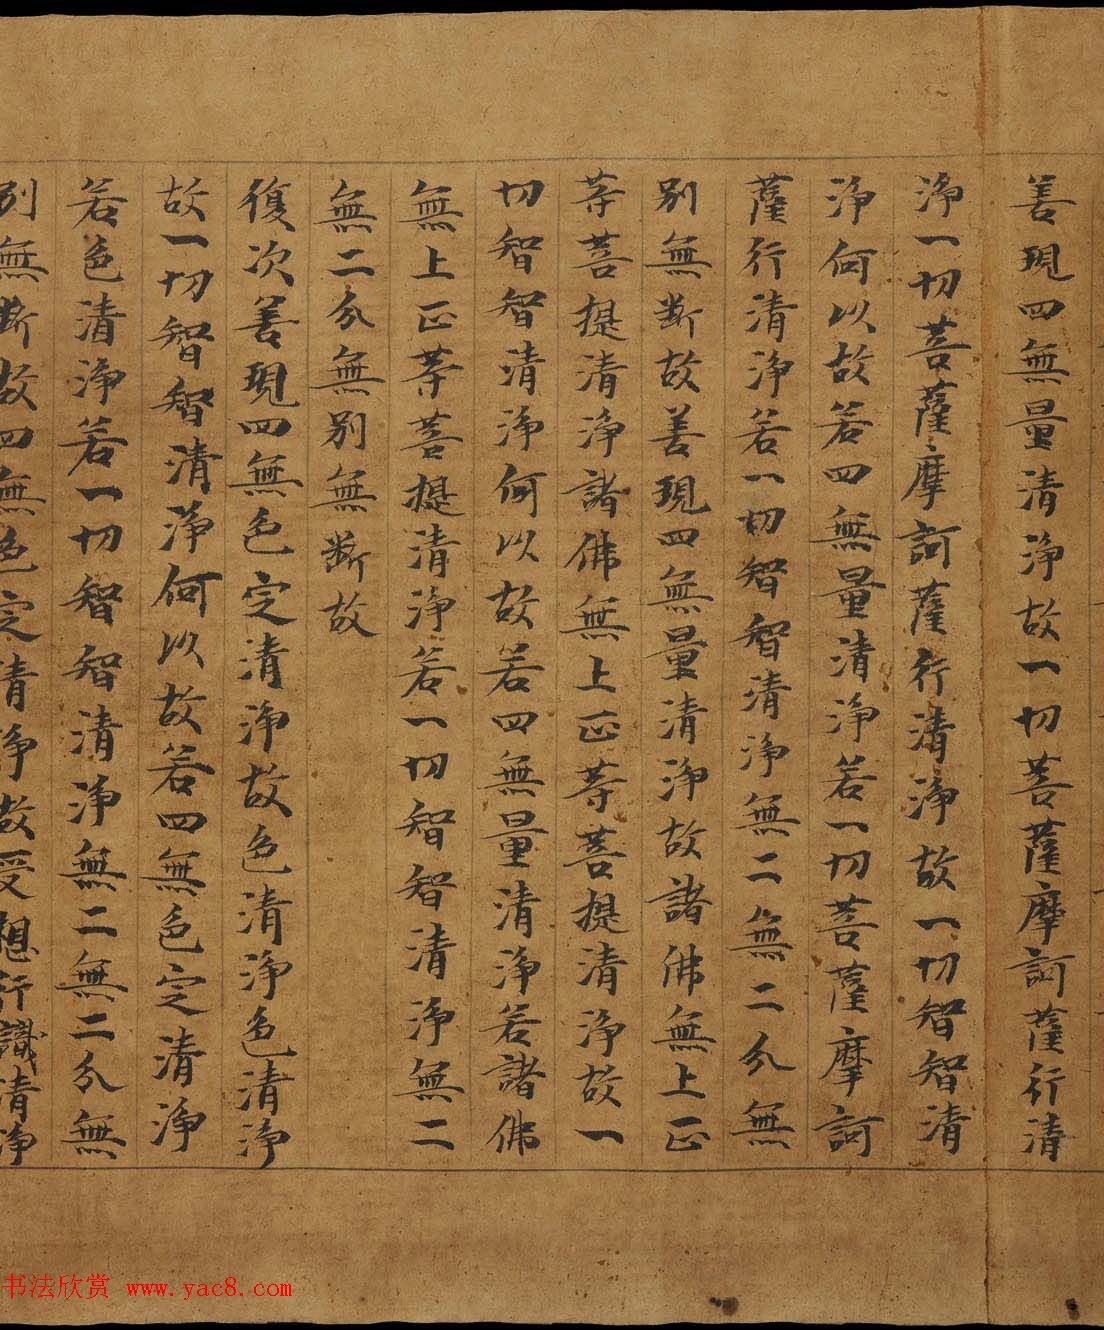 善現四無量清淨故一切菩薩摩訶薩行清
淨一切菩薩摩訶薩行清淨故一切智智清
淨何以故若四無量清淨若一切菩薩摩訶
薩行清淨若一切智智清淨無二無二分無
別無斷故善現四無量清淨故諸佛無上正
等菩提清淨諸佛無上正等菩提清淨故一
切智智清淨何以故若四無量清淨若諸佛
無上正等菩提清淨若一切智智清淨無二
無二分無別無斷故
復次善現四無色定清淨故色清淨色清淨
故一切智智清淨何以故若四無色定清淨
若色清淨若一切智智清淨無二無二分無
別無斷故四無色定清淨故受想行識清淨
书法欣赏 www.yac8.com